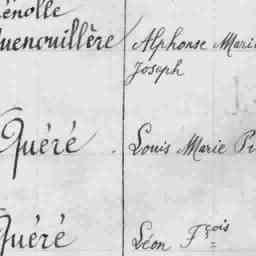 énolle
uenouillère Alphonse Mari
Joseph
Quéré . Louis Marie Pi
Quéré Léon Fçois